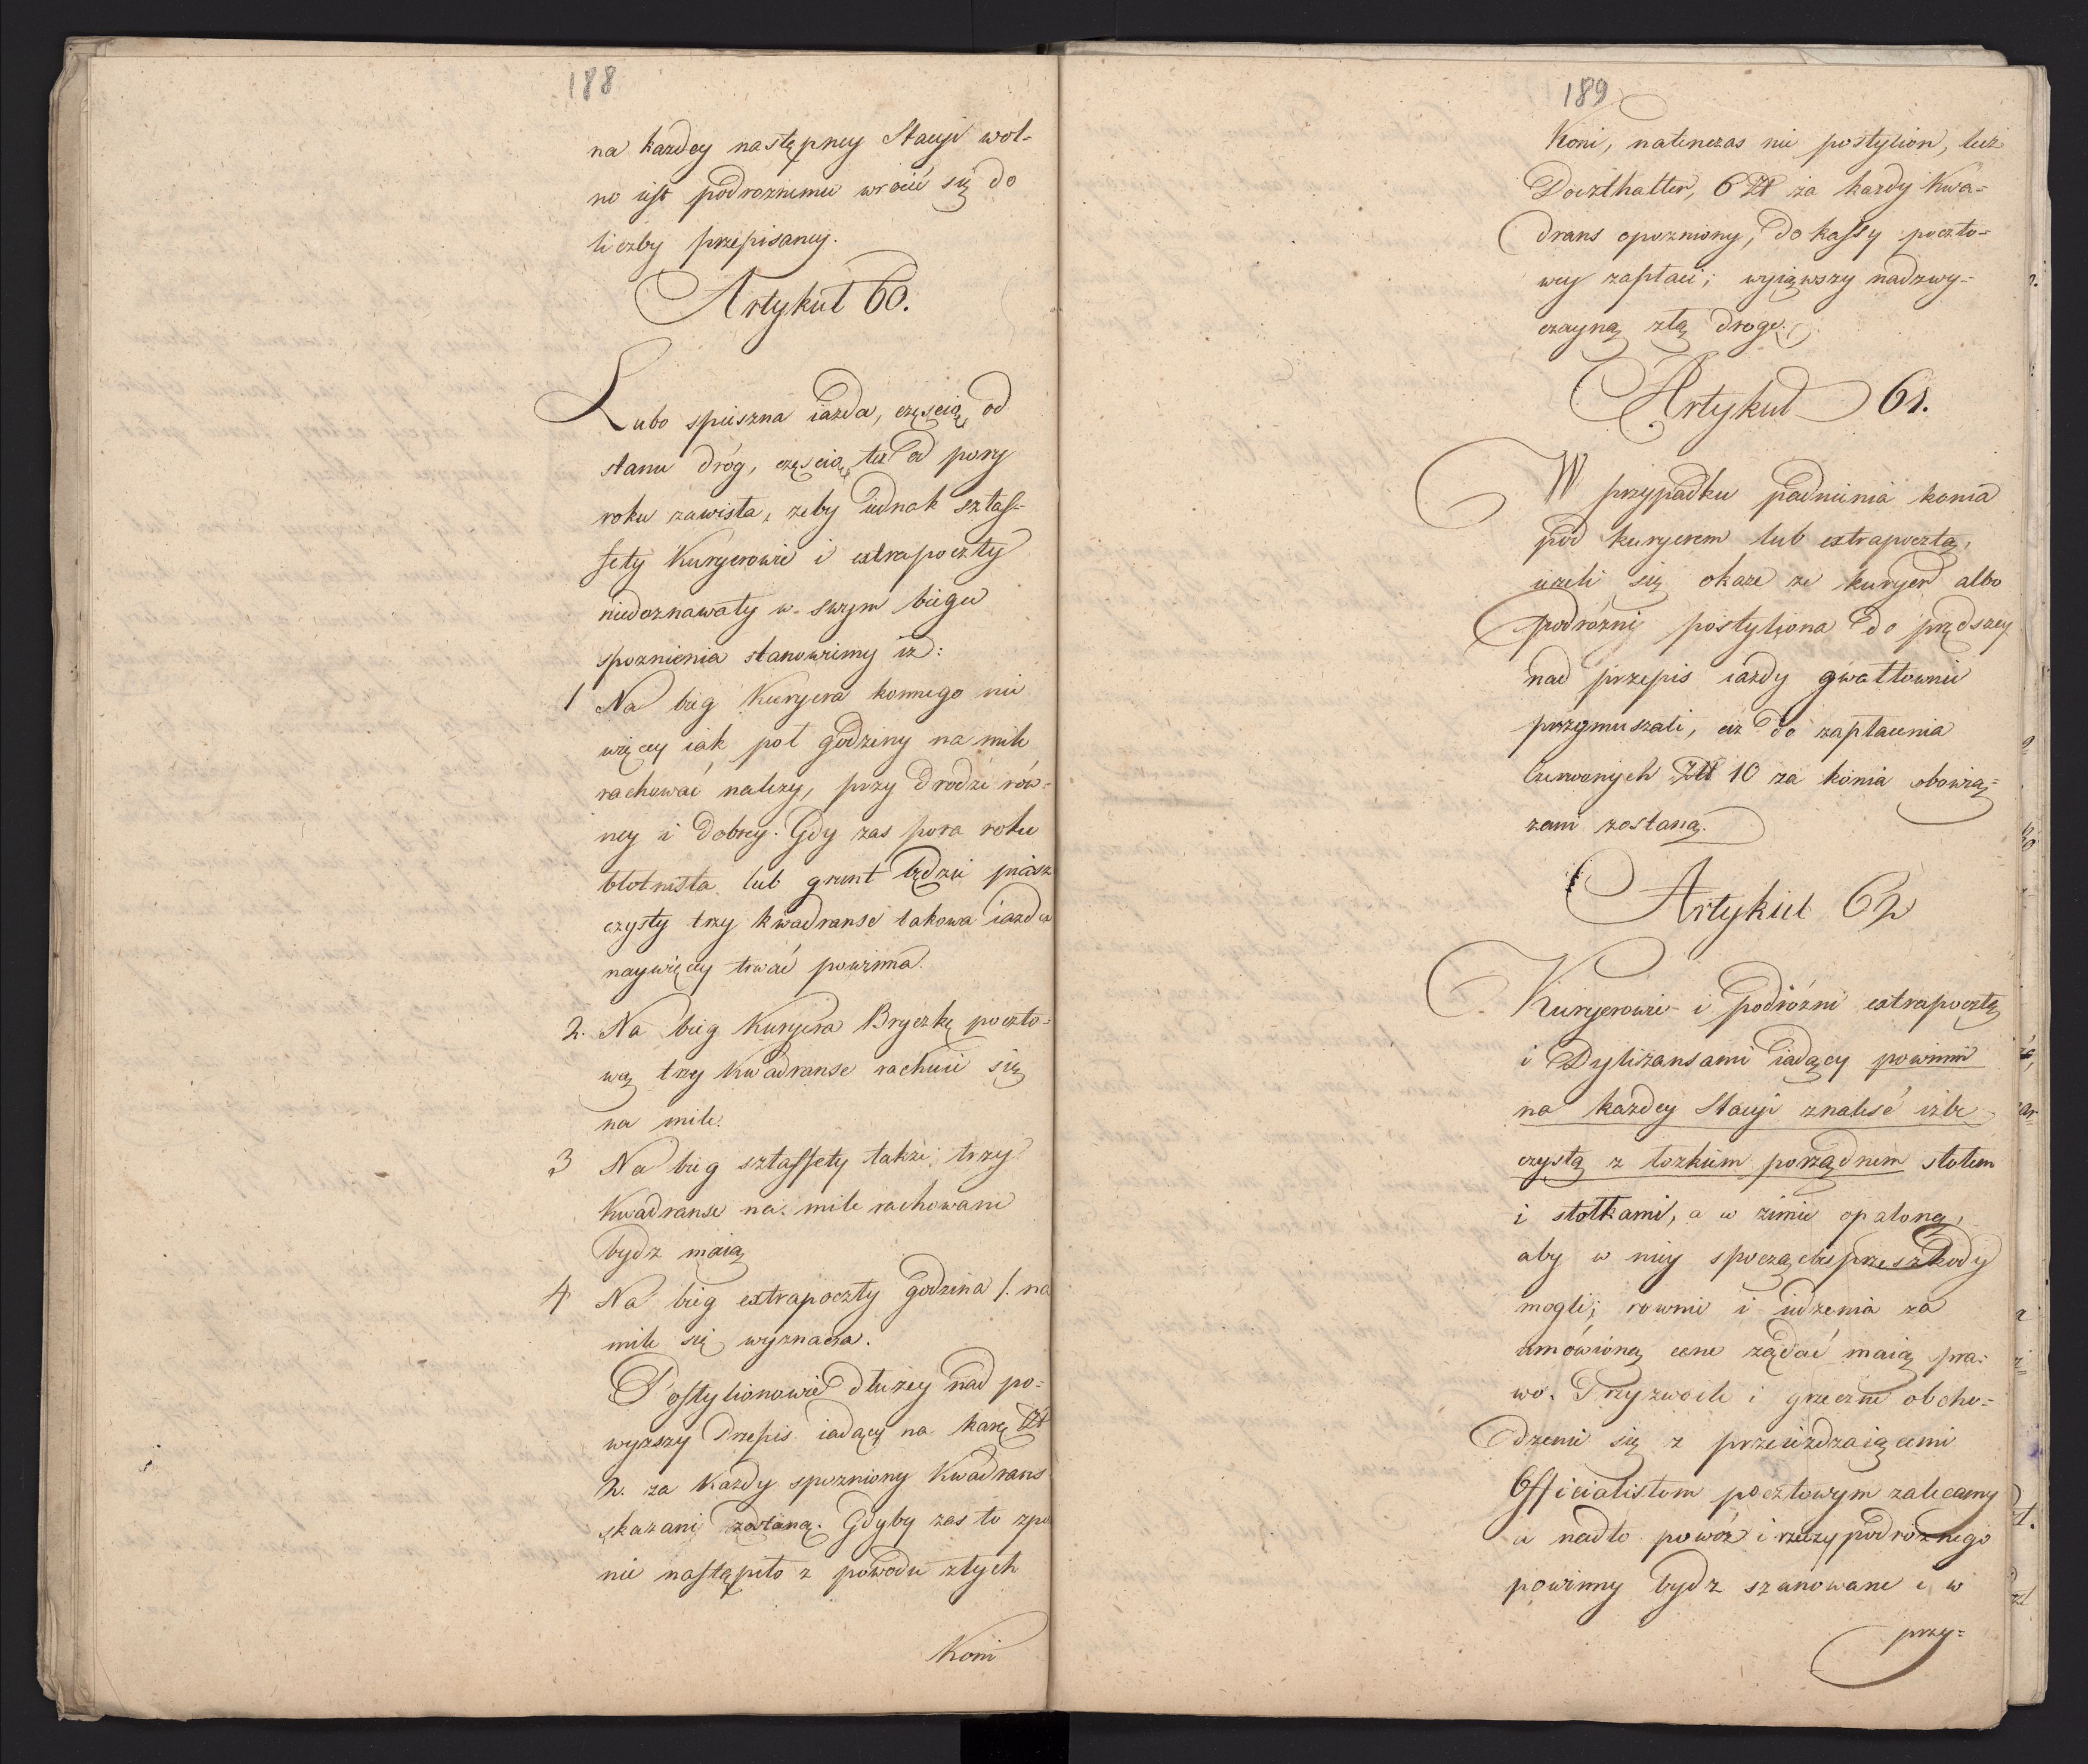 188
na każdey następney Stacyi wol-
no iest podroznemu wrócić się do
liczby przepisaney.
Artykuł 60.
Lubo spieszna iazda, częścią od
stanu dróg, częścią też od pory
roku zawisła, żeby iednak sztaf-
fety Kuryerowie i extrapoczty
niedoznawały w swym biegu
spoznienia stanowiemy iż:
1 Na bieg Kuryera konnego nie
więcey iak poł godziny na mile
rachować należy, przy drodze rów-
ney i dobrey. Gdy zas pora roku
błotnista lub grunt będzie piasz
czysty trzy kwadranse takowa iazda
naywięcey trwać powinna.
2. Na bieg Kuryera Bryczkę poczto-
wą trzy Kwadranse rachuie się
na mile.
3 Na bieg sztaffety także trzy
Kwadranse na mile rachowane
bydz maią
4 Na bieg extrapoczty godzina 1. na
mile się wyznacza.
Postylionowie dłużey nad po-
wyższy Przepis iadący na karę Zł
2. za Każdy spozniony Kwadrans
skazani zostaną. Gdyby zas to zpo
nie nastąpiło z powodu złych
Koni
189
Koni, natenczas nie postylion, lecz
Poczthalter, 6 Zł za każdy Kwa-
drans opozniony, do kassy poczto-
wey zapłaci; wyiąwszy nadzwy-
czayną złą drogę.
Artykuł 61.
W przypadku padnienia konia
pod kuryerem lub extrapocztą,
ieżeli się okaże że kuryer albo
podróżni postyliona do prędszey
nad przepis iazdy gwałtownie
przymuszali, ciż do zapłacenia
Czerwonych Złł 10 za konia obowią-
zani zostaną.
Artykuł 62
Kuryerowie i podróżni extrapocztą
i Dyliżansami iadący powinni
na każdey Stacyi znaleść izbę
czystą z łozkiem porządnem stołem
i stołkami, a w zimie opaloną,
aby w niey spocząc bez przeszkody
mogli; rownie i iedzenia za
umówioną cenę żądać maią pra-
wo. Przyzwoite i grzeczne obcho-
dzenie się z przeieżdzaiącemi
Officialistom pocztowym zalecamy
a nadto powóz i rzeczy podróżnego
powinny bydz szanowane i w
przy-